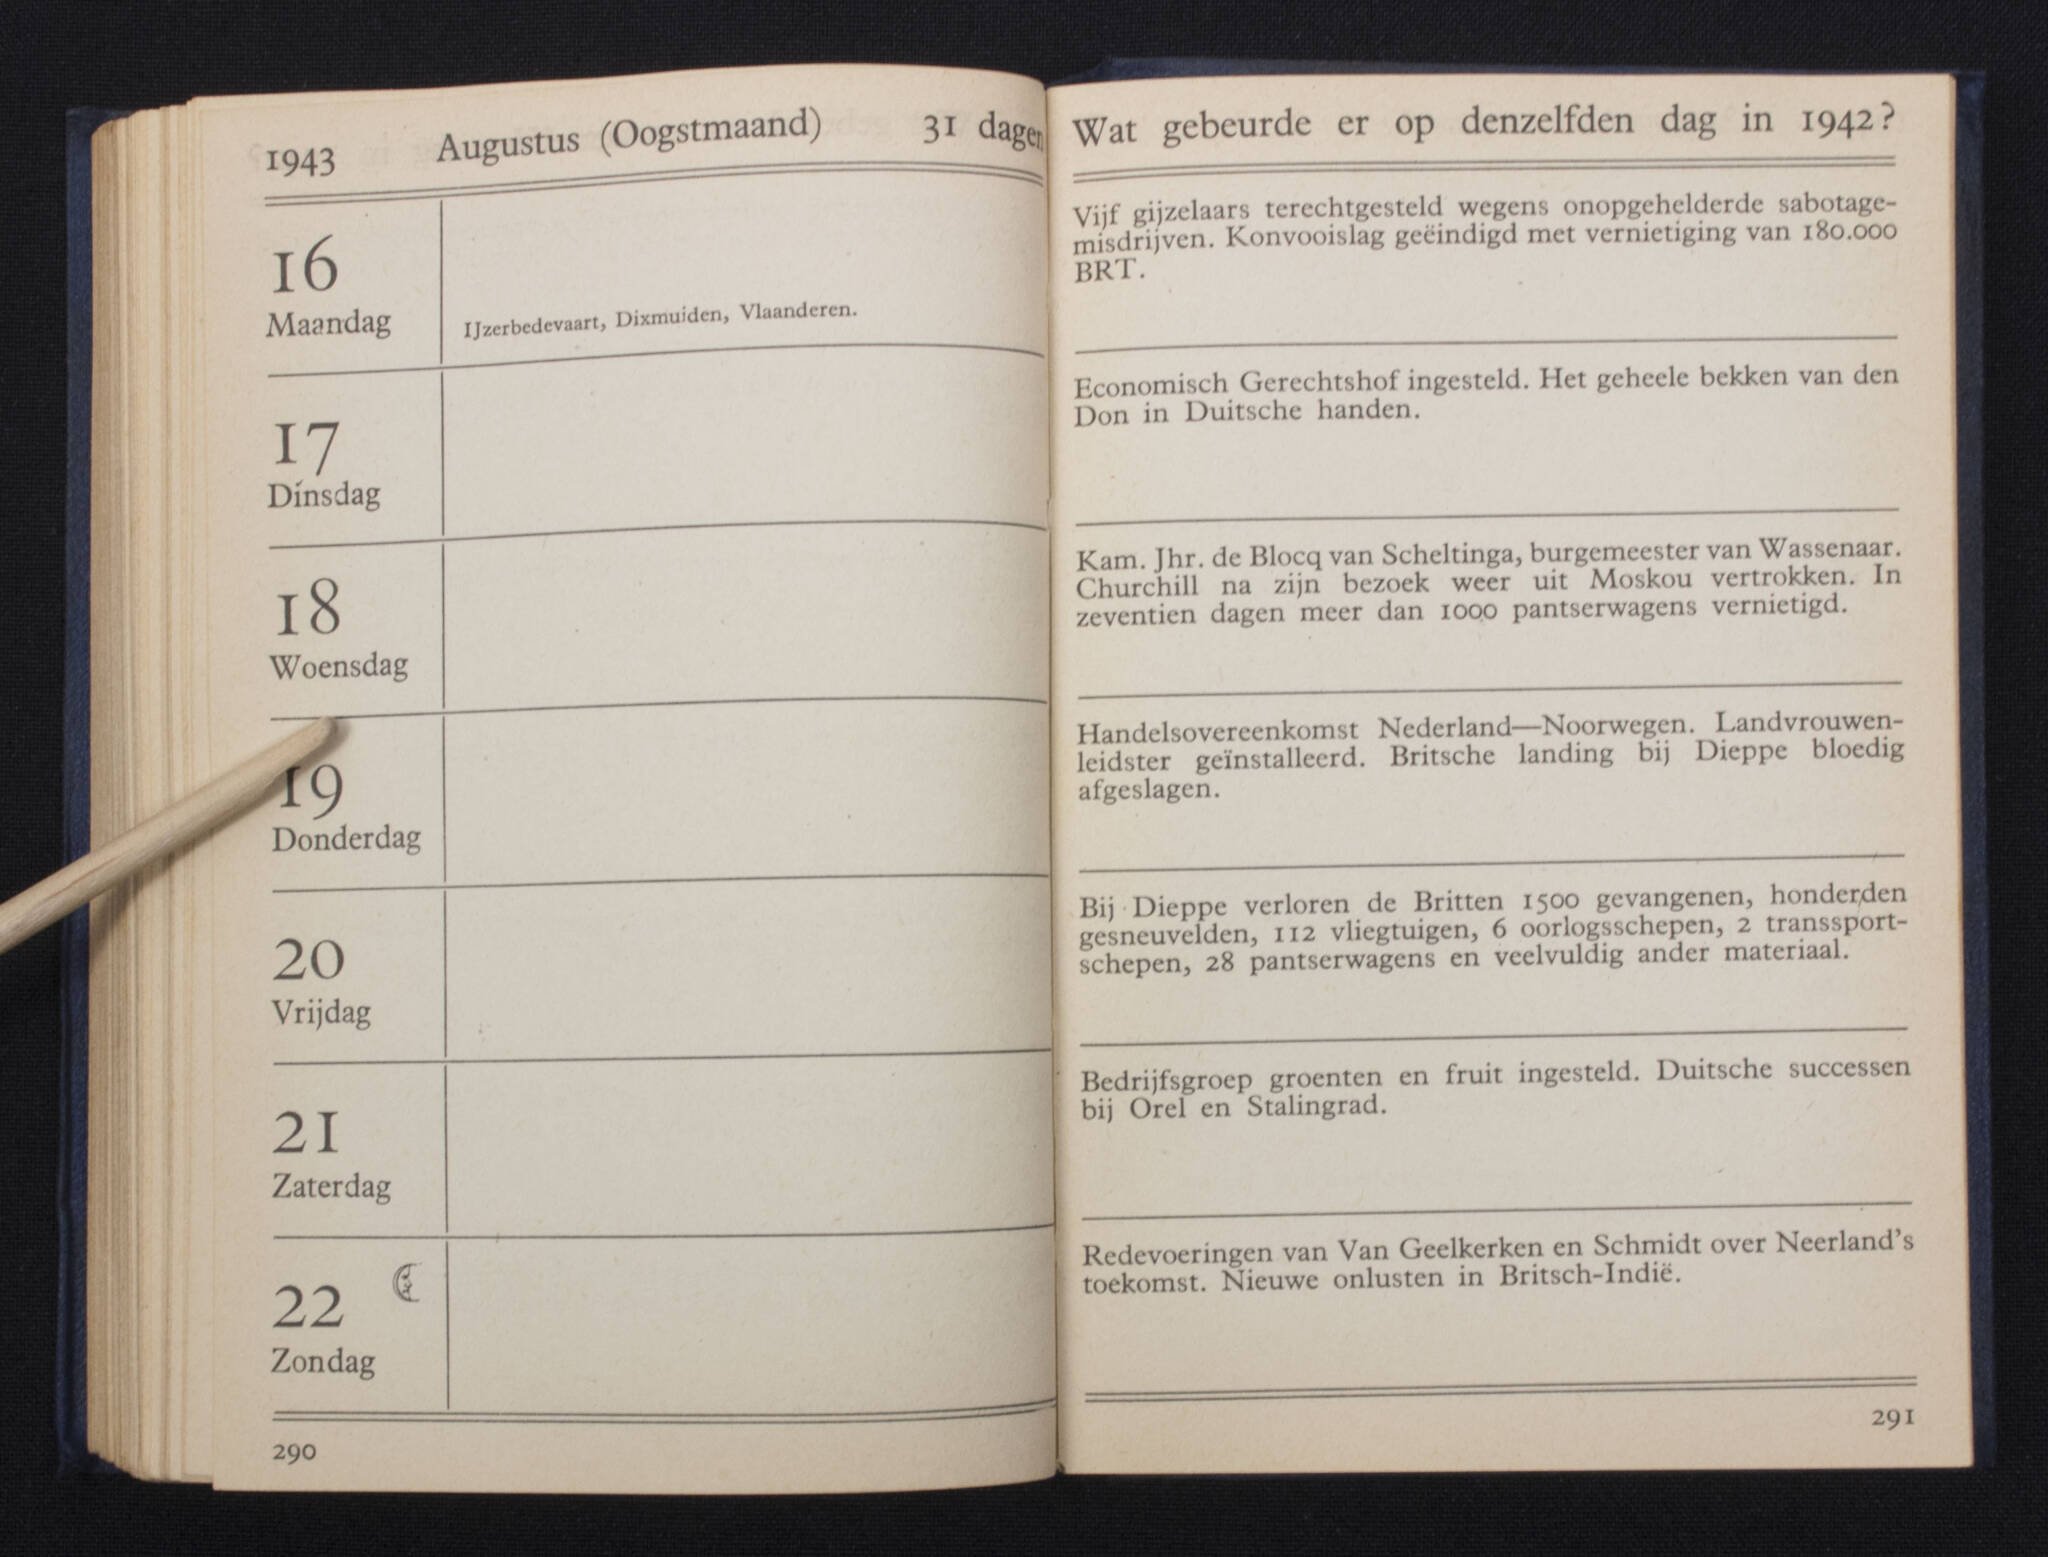 1943 Augustus (Oogstmaand) 31 dagen
16
Maandag
IJzerbedevaart, Dixmuiden, Vlaanderen.
17
Dinsdag
18
Woensdag
19
Donderdag
20
Vrijdag
21
Zaterdag
22
Zondag
290
Wat gebeurde er op denzelfden dag in 1942?
Vijf gijzelaars terechtgesteld wegens onopgehelderde sabotage-
misdrijven. Konvooislag geëindigd met vernietiging van 180.000
BRT.
Economisch Gerechtshof ingesteld. Het geheele bekken van den
Don in Duitsche handen.
Kam. Jhr. de Blocq van Scheltinga, burgemeester van Wassenaar.
Churchill na zijn bezoek weer uit Moskou vertrokken. In
zeventien dagen meer dan 1000 pantserwagens vernietigd.
Handelsovereenkomst Nederland—Noorwegen. Landvrouwen-
leidster geïnstalleerd. Britsche landing bij Dieppe bloedig
afgeslagen.
Bij Dieppe verloren de Britten 1500 gevangenen, honderden
gesneuvelden, 112 vliegtuigen, 6 oorlogsschepen, 2 transsport-
schepen, 28 pantserwagens en veelvuldig ander materiaal.
Bedrijfsgroep groenten en fruit ingesteld. Duitsche successen
bij Orel en Stalingrad.
Redevoeringen van Van Geelkerken en Schmidt over Neerland's
toekomst. Nieuwe onlusten in Britsch-Indië.
291